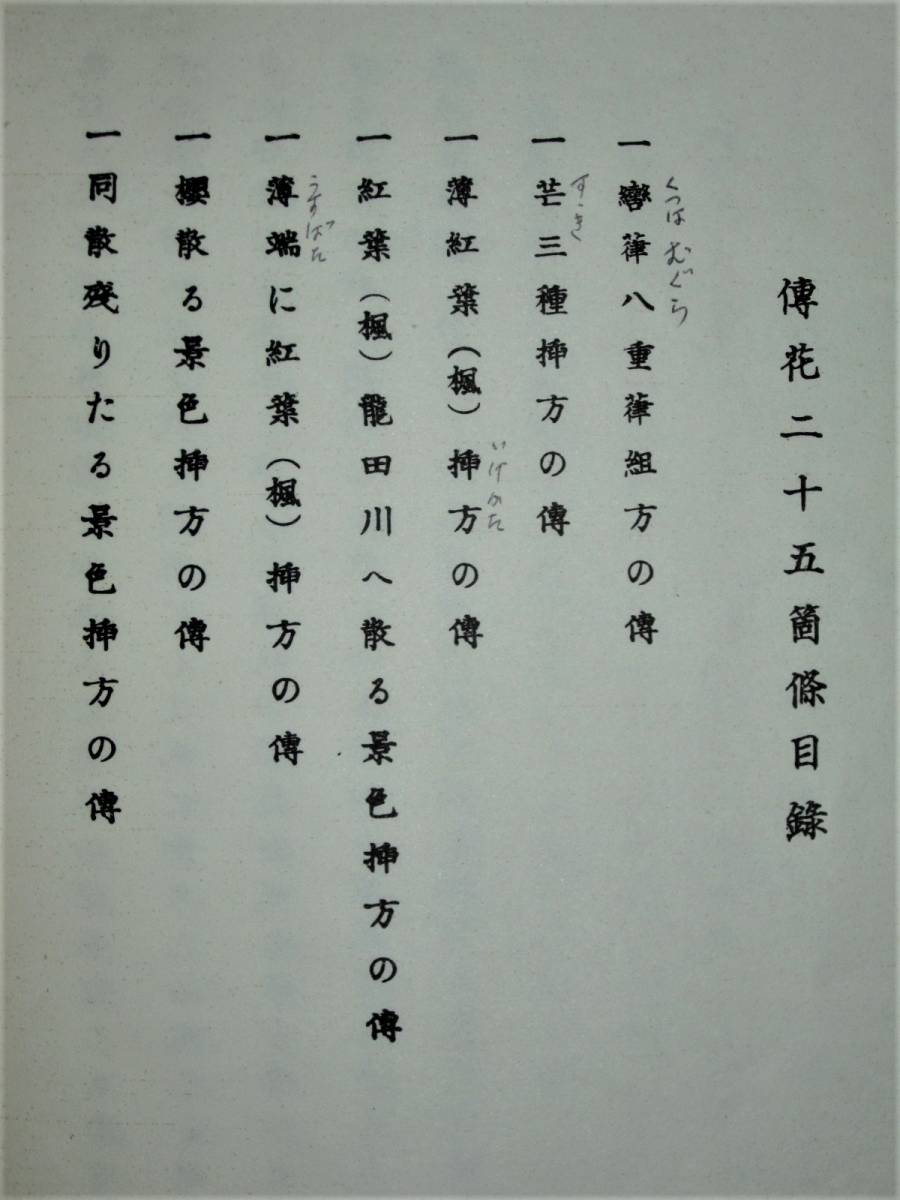 傳花二十五箇條目錄
くつは むぐら
一轡葎八重葎組方の傳
すゝき
一芒三種揷方の傳
いけかた
一薄紅葉(楓)揷方の傳
一紅葉(楓)龍田川へ散る景色揷方の傳
うすばた
一薄端に紅葉(楓)揷方の傳
一櫻散る景色揷方の傳
一同散残りたる景色揷方の傳